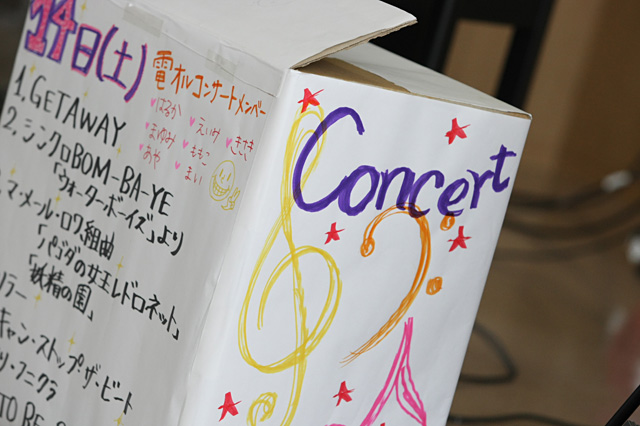 14日(土)
電オルコンサートメンバー
はるか
まゆみ えいけ きさき
あや ももこ
まい
1. GETAWAY
2. シンクロBOM-BA-YE
「ウォーターボーイズ」より
マ・メール・ロワ組曲
「パゴダの女王レドロネット」
「妖精の園」
キャン・ストップ・ザ・ビート
フニクラ
TO BE
Concert